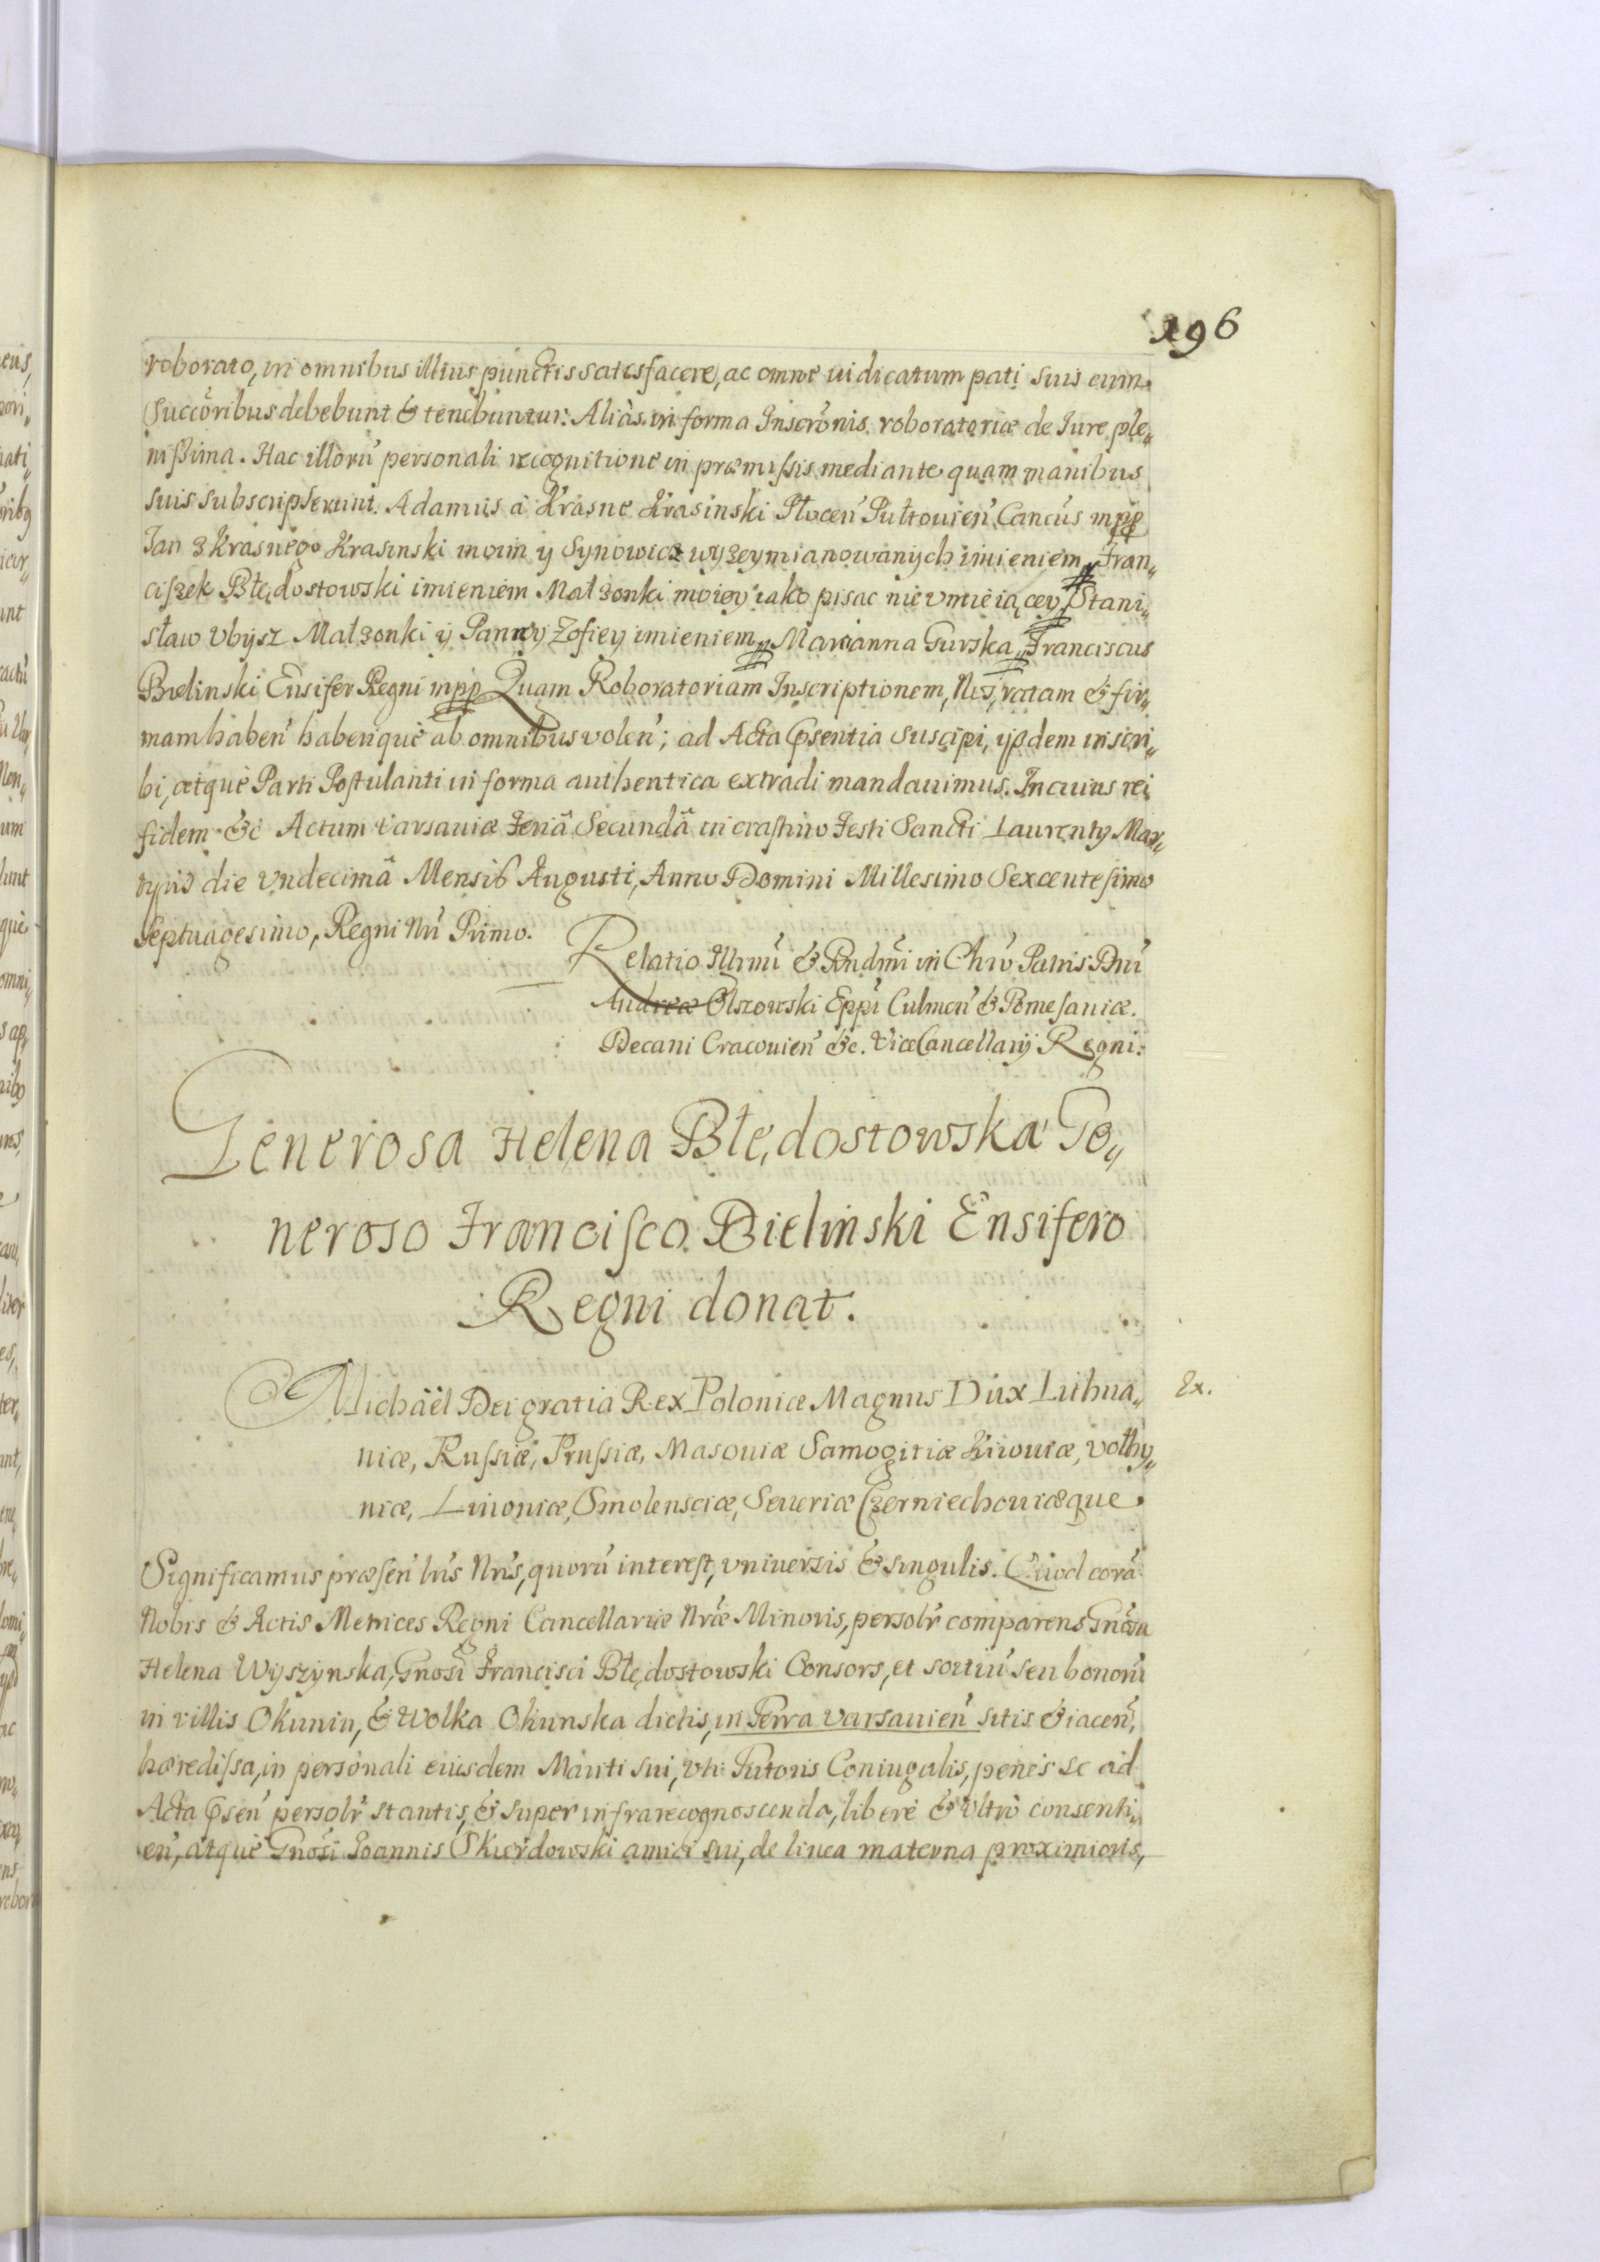 196
roborato, in omnibus illius punctis satisfacere, ac omne iudicatum pati suis cum
Succoribus debebunt & tenebuntur: Aliàs in forma Inscrõnis roboratoriæ de Iure ple„
nissima. Hac illorũ personali recognitione in præmissis mediante quam manibus
suis subscripserunt. Adamus à Krasne Krasinski Płocen̄ Pułtouien̄ Cancus mpp
Ian z Krasnego Krasinski moim y Synowicz wyzeymianowanych imieniem, Fran„
ciszek Błędostowski imieniem Małzonki moiey iako pisac nie vmieiącey, Stani„
sław Vbysz Małzonki y Panny Zofiey imieniem, Marianna Gurska, Franciscus
Bielinski Ensifer Regni mpp Quam Roboratoriam Inscriptionem, Nos, ratam & fir„
mam haben̄ habenquè ab omnibus volen̄; ad Acta p̃sentia suscipi, ijsdem inscri„
bi, atquè Parti Postulanti in forma authentica extradi mandauimus. In cuius rei
fidem &c Actum Varsauiæ Feriâ Secundâ in crastino Festi Sancti Laurentij Mar„
tyris die Vndecimâ Mensis Augusti, Anno Domini Millesimo Sexcentesimo
Septuagesimo, Regni Nr̃i Primo.
Relatio Illrmi & Rndmi in Chro Patris Dni
Andreæ Olszowski Eppi Culmen̄ & Pomesaniæ.
Decani Cracouien̄ &c. ViceCancellarij Regni:
Generosa Helena Błędostowska Ge„
neroso Francisco Bielinski Ensifero
Regni donat.
Michäel Dei gratia Rex Poloniæ Magnus Dux Lithua„
Ex.
niæ, Russiæ, Prussiæ, Masouiæ Samogitiæ Kiiouiæ, Volhy„
niæ, Liuoniæ, Smolensciæ, Seueriæ Czerniechouiæque.
Significamus præsen̄ lr̃is Nr̃is, quorũ interest, vniuersis & singulis. Quod corã
Nobis & Actis Metrices Regni Cancellariæ Nr̃æ Minoris, persolr̃ comparens Gnosa
Helena Wyszynska, Gnosi Francisci Błędostowski Consors, et sortiũ seu bonorũ
in villis Okuniu, & Wolka Okunska dictis, in Terra Varsauien̄ sitis & iacen̄,
hæredissa, in personali eiusdem Mariti sui, vti Tutoris Coniugalis, penes se ad
Acta p̃sen̄ persolr̃ stantis, & super infrarecognoscenda, liberè & vltrò consenti„
en̄, atquè Gnosi Ioannis Skierdowski amici sui, de linea materna proximioris,